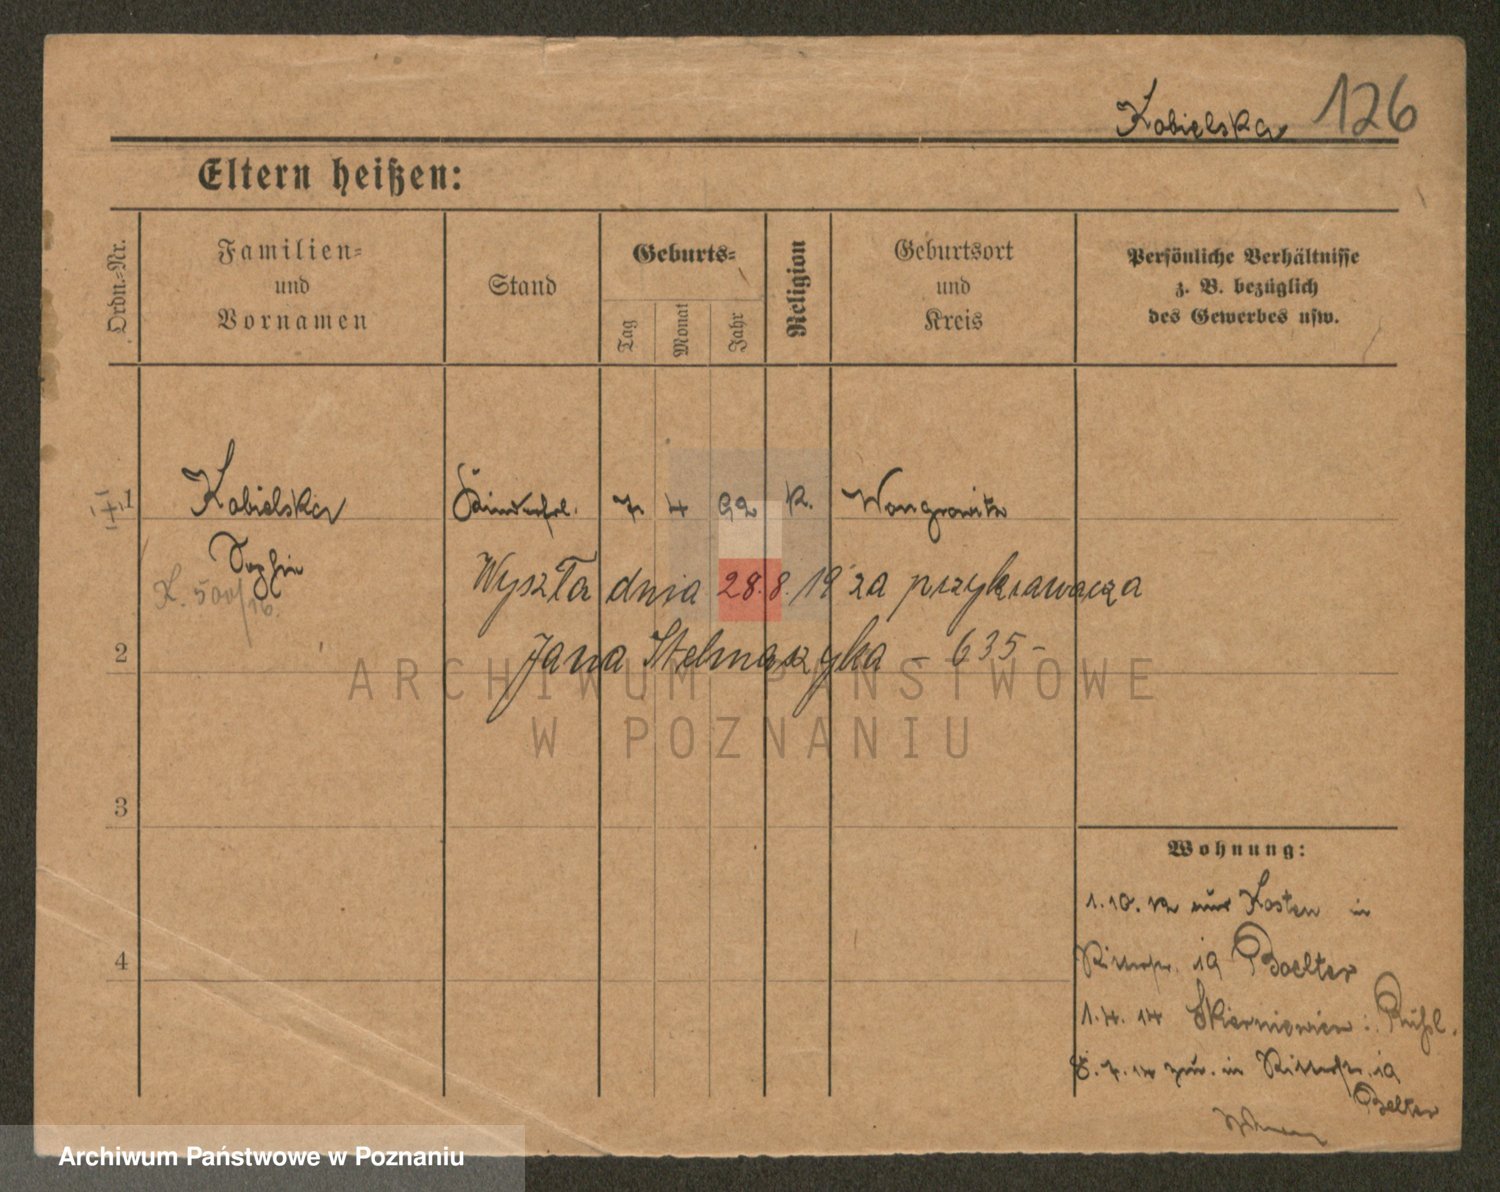 Kobielska 126
Eltern heißen:
Ordn.-Nr.
Familien-
und
Vornamen
Stand
Geburts-
Tag
Monat
Jahr
Religion
Geburtsort
und
Kreis
Persönliche Verhältnisse
z. B. bezüglich
des Gewerbes usw.
1 Kobielska Kinderfrl. 7 4 92 k. Wongrowitz
Sophie
K. 500/16.
Wyszła dnia 28.8.19 za przykrawacza
Jana Stelmaszyka – 635 –
2
ARCHIWUM PAŃSTWOWE
W POZNANIU
3
Wohnung:
1.10.12 aus Kosten in
Ritterstr. 19 Boelter
4
1.4.14 Skierniewice: Rußl.
8.7.14 zur. in Ritterstr. 19
Belter
Archiwum Państwowe w Poznaniu